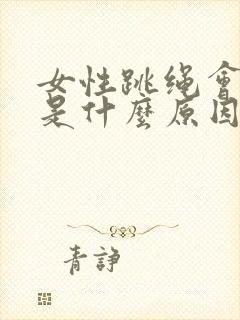 女性跳绳會
是什麼原因
青諍